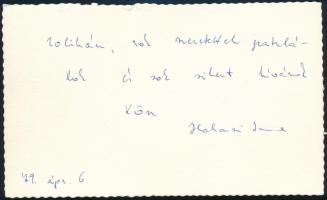 Zolikám, sok szeretettel gratulá-
lok és sok sikert kívánok
Kösz
Halasi Imre
'79. ápr. 6.